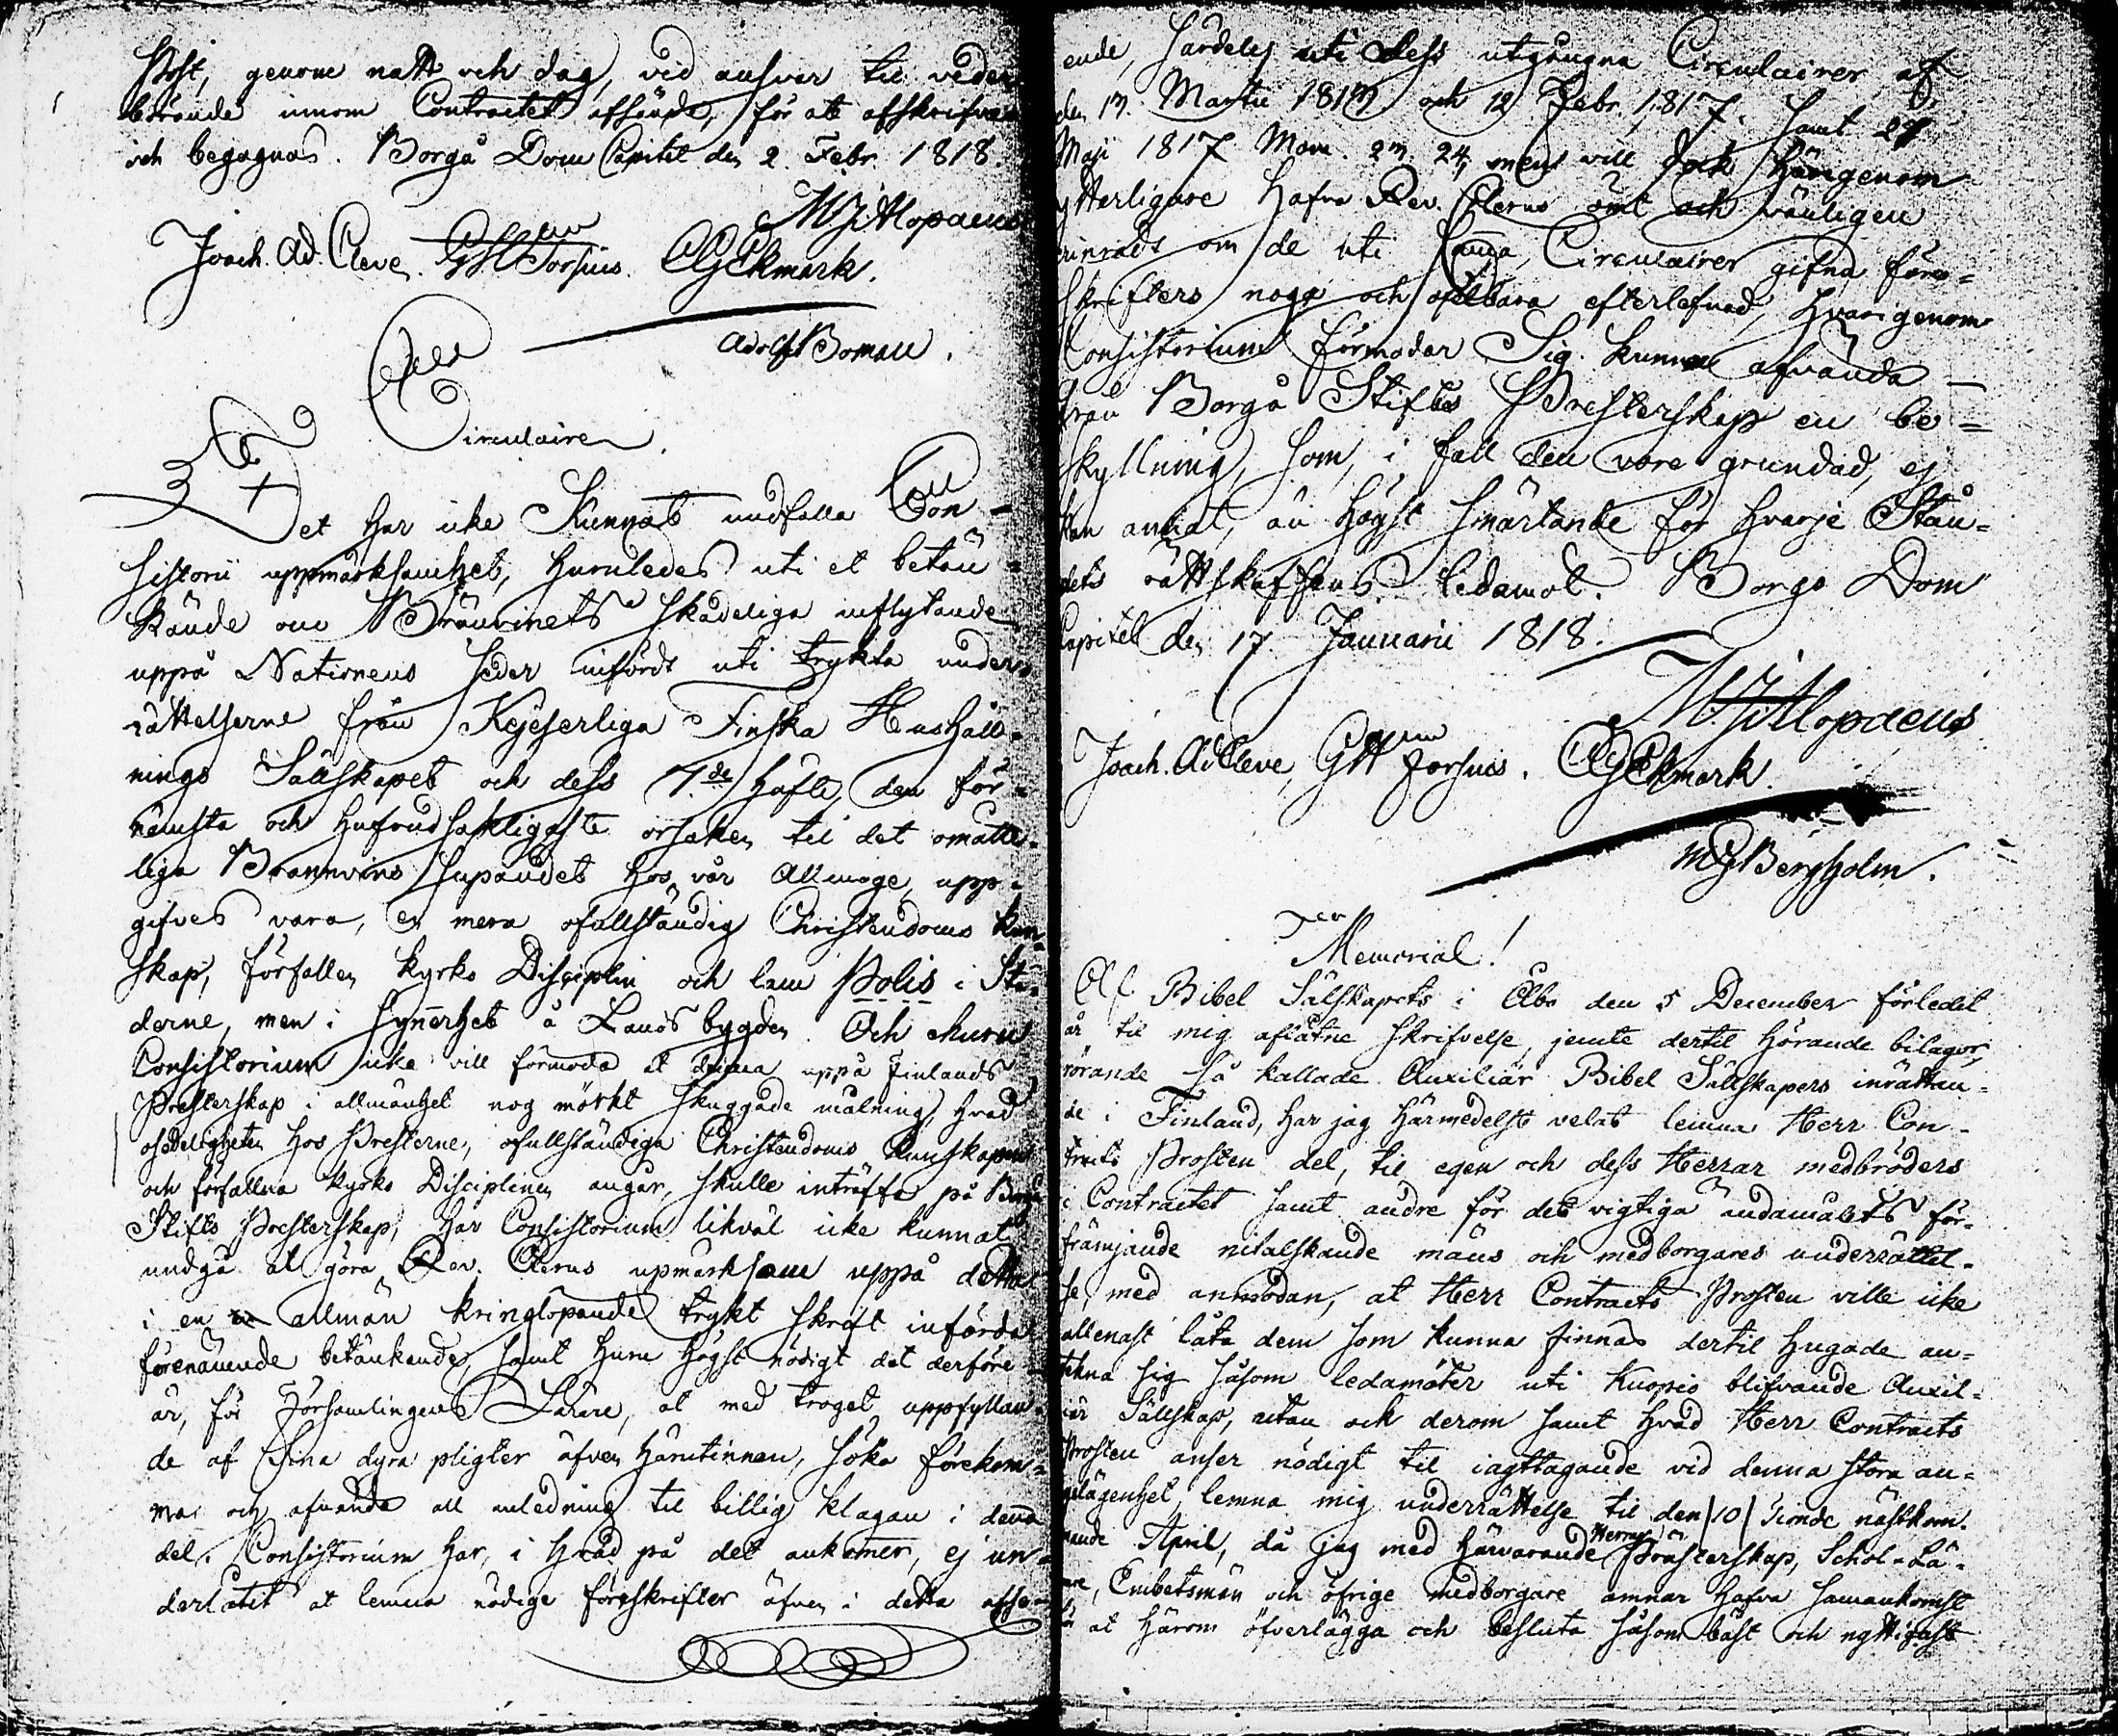 Post, genom natt och dag, vid answar til veder-
börande innom Contractet afsände, för at afskrifvas
och begagnas. Borgå Dom Capitel den 2. Febr. 1818.
M. J. Alopaeus
Joach. Ad. Cleve. G H Forsius. C G Ekmark.
Adolf Boman.
Circulaire
Det har icke kunnat undfalla Con-
sistorii uppmärksamhet, huruledes uti et betän-
kande om Brännvinets skadeliga inflytande
uppå Nationens seder infördt uti trykta under-
rättelserne från Kejserliga Finska Hushåll-
nings Sällskapet och dess 7.de häfte, den för-
nämsta och hufvudsakligaste orsaken til det omåtte-
liga Brännvins supandet hos vår Allmoge, upp-
gifves vara, en mera ofullständig Christendoms kun-
skap, förfallen kyrko Disciplin och lam Polis i Stä-
derne, men i synnerhet å Landsbygden. Och churu
Consistorium icke vill förmoda at denna uppå Finlands
Presterskap i allmänhet nog mörkt skuggade målning, hvad
osedligheten hos Presterne, ofullständiga Christendoms kunskapen
och förfallna kyrko Disciplinen angår, skulle inträffa på Borgå
Stifts Presterskap, har Consistorium likväl icke kunnat
undgå at göra Rev. Clerus upmärksam uppå detta
i en allmän kringlöpande trykt skrift införda
förenämnde betänkande, samt huru högst nödigt det derföre
är, för Församlingens Lärare, at med troget uppfyllan-
de af sina dyra pligter äfven härutinnan, söka förekom-
ma och afvända all anledning til billig klagan i denna
del. Consistorium har, i hvad på det ankommer, ej un-
derlåtit at lemna nödige föreskrifter äfven i detta afse-
ende, särdeles uti dess utgångna Circulairer af
den 13. Martii 1813 och 12 Febr. 1817. samt 27
Maji 1817 Mom. 2. men vill dock härigenom
ytterligare hafva Rev. Clerus ömt och vänligen
om de uti samma Circulairer gifna före-
skrifters noga och ofelbara efterlefnad, hvarigenom
Consistorium förmodar Sig kunna afvända
från Borgå Stifts Presterskap en be-
skyllning, som, i fall den vore grundad, ej
kan annat, än högst smärtande för hvarje Stån-
dets rättskaffens ledamot. Borgå Dom
Capitel den 17. Januarii 1818.
M. J. Alopaeus
Joach. Ad Cleve, G H Forsius. C G Ekmark.
Bergholm.
Memorial!
Af Bibel Sälskapets i Åbo den 5 December förledit
år til mig aflåtne skrifvelse, jemte dertil hörande bilagor,
rörande så kallade Auxiliär Bibel Sällskapers inrättan-
de i Finland, har jag härmedelst velat lemna Herr Con-
tracts Prosten del, til egen och dess Herrar medbröders
i Contractet samt andre för det vigtiga ändamålets för-
främjande nitälskande mäns och medborgares underrättel-
se, med anmodan, at Herr Contracts Prosten ville icke
allenast låta dem som kunna finnas dertil hugade an-
tekna sig såsom ledamöter uti Kuopio blifvande Auxil-
iär Sällskap, utan ock derom samt hvad Herr Contracts
Prosten anser nödigt til iagttagande vid denna stora an-
gelägenhet, lemna mig underrättelse til den /10/ tionde nästkom-
mande April, då jag med härvarande Herrar Prästerskap, Schol-Lä-
rare, Embetsmän och öfrige medborgare ämnar hafva sammankomst
för at härom öfverlägga och besluta såsom bäst och nyttigast